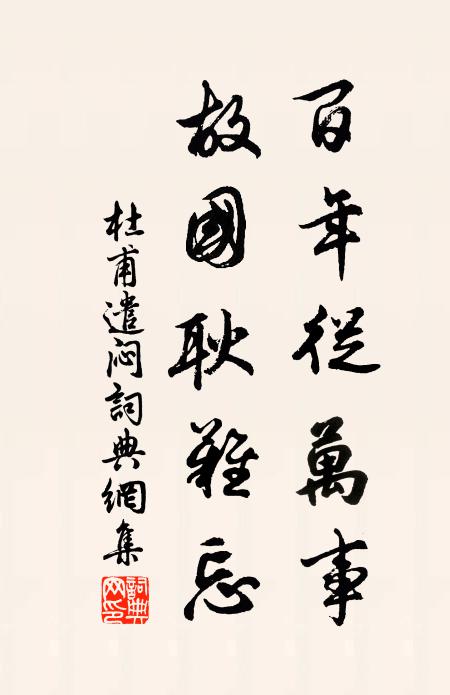 百年從萬事
故國耿難忘
杜甫遣闷詞典網集
詞典网印